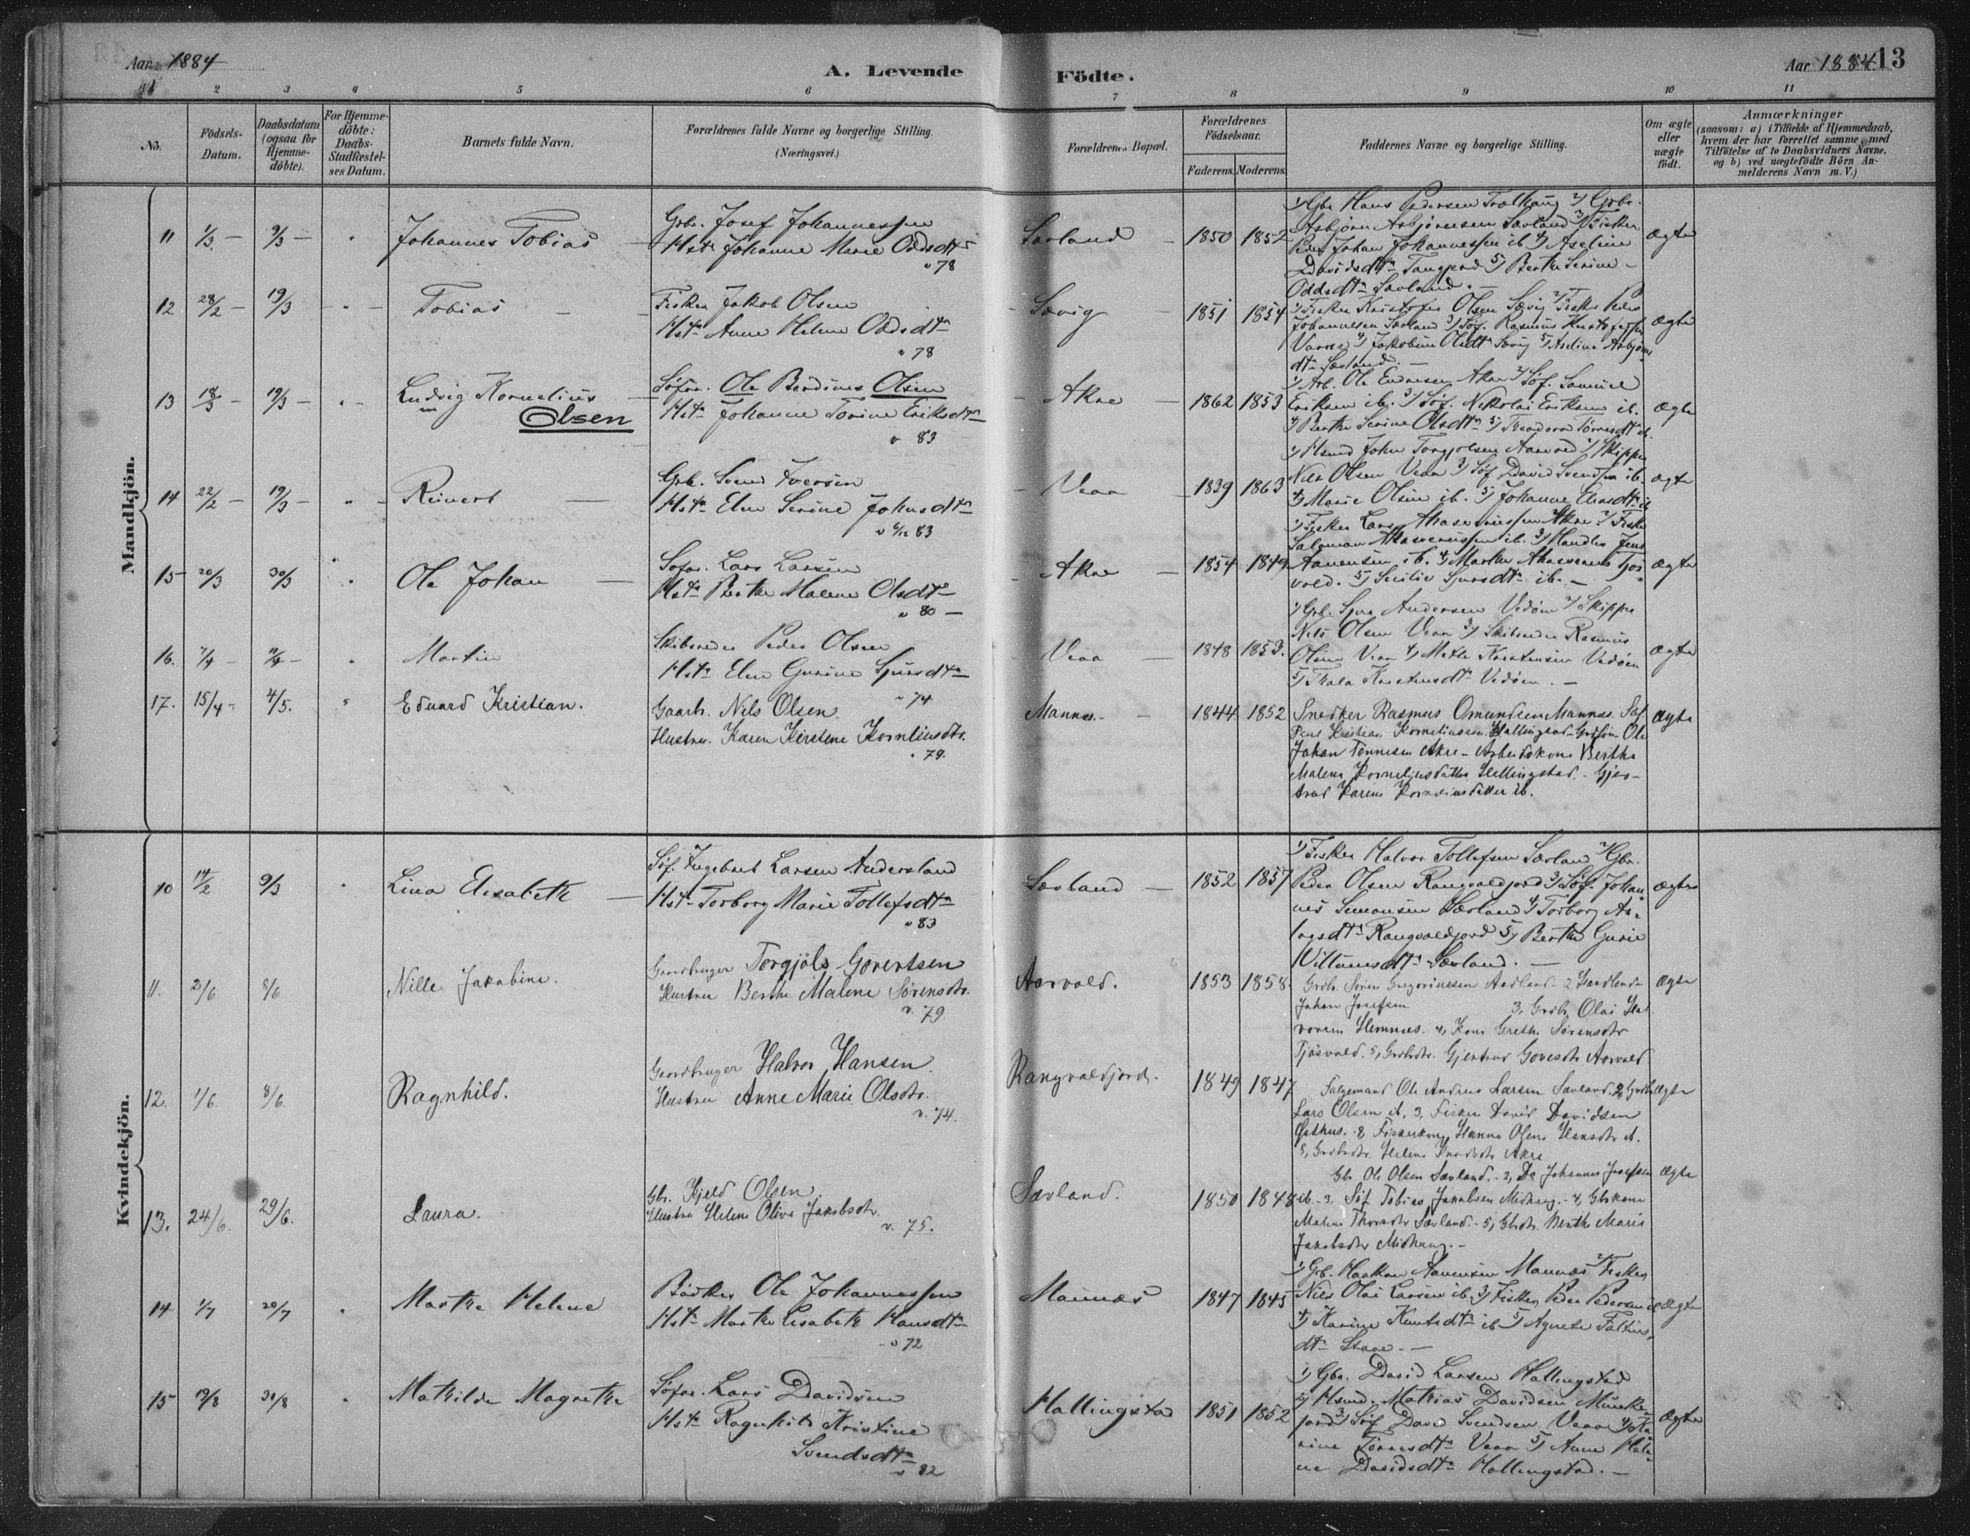 Aar 1884
A. Levende
Födte.
Aar 1884.
13
2 3 4 5 6 7 8 9 10 11
No.
Födsels-
Datum.
Daabsdatum
(ogsaa for
Hjemme-
döbte).
For Hjemme-
döbte:
Daabs-
Stadfæstel-
ses Datum.
Barnets fulde Navn.
Forældrenes fulde Navne og borgerlige Stilling.
(Næringsvei.)
Forældrenes Bopæl.
Forældrenes
Födselsaar.
Faderens. Moderens.
Faddernes Navne og borgerlige Stilling.
Om ægte
eller
uægte
födt.
Anmærkninger
(saasom: a) i Tilfælde af Hjemmedaab,
hvem der har forrettet samme med
Tilföielse af to Daabsvidners Navne,
og b) ved uægtefödte Börn An-
melderens Navn m. V.)
Mandkjön.
11 1/3 - 9/3 - Johannes Tobias
Grbr. Josef Johannessen
Hst. Johanne Marie Oddsdtr
v 78
Sævland 1850 1852
1) Gbr Hans Pedersen 2) Grbr.
Asbjörn Asbjörnsen Sævland 3) Fisker
Peder Johan Johannessen ib. 4) Aseline
Davidsdtr 5) Berthe Serine
Oddsdtr Sævland.
Ægte
12 28/2 - 19/3 - Tobias
Fisker Jakob Olsen
Hstr Anne Helene Oddsdtr
v 78
Sævig 1851 1854
1) Fisker Kristofer Olsen Sævig 2) Fisker Peder
Johannesen Sævland 3) Söf. Rasmus
4) Jakobine Olsdtr Sævig 5) Aseline Asbjörns
dtr Sævland.
Ægte
13 18/3 - 19/3 - Ludvig Kornelius
Olsen
Söfar. Ole Berdines Olsen
Hstr Johanne Torine Eriksdtr
v 83
Akre 1862 1853
1) Arb. Ole Endresen Akre 2) Söf. Samuel
Eriksen ib. 3) Söf. Nikolai Eriksen ib.
4) Berthe Serine Olsdtr 5) Theodora Törresdtr ib.
Ægte
14 22/2 - 19/3 - Reinert
Grb. Svend Iversen
Hstr Elen Serine Johnsdtr
v 6/12 83
Veaa 1839 1863
1) Hsmd John Torgjelsen Aarvold 2) Skipper
Nils Olsen Veaa 3) Söf. David Svendsen ib.
4) Marie Olsen ib. 5) Johanne Eliasdtr ib
Ægte
15 20/3 30/3 Ole Johan
Söfar. Lars Larsen
Hstr Berthe Malene Olsdtr
v 80
Akre 1854 1849
1) Fisker Lars Ahasverussen Akre 2) Fisker
Salomon Ahasverussen ib. 3) Handler Jens
Aanensen ib. 4) Marthe Ahasverus
5) Secilie Sjursdtr ib.
Ægte
16. 7/4 - 14/4 - Martin
Skibsreder Peder Olsen
Hstr Elen Gurine Sjursdtr
v 74
Veaa 1848 1853.
1) Grb. Sjur Andersen Vedöen 2) Skipper
Nils Olsen Veaa 3) Skibsreder Rasmus
Olsen Veaa 4) Mette Kristensen Vedöen
5) Thala Kristensdtr Vedöen.
Ægte
17. 15/4 - 4/5. Eduard Kristian.
Gaarbr. Nils Olsen.
Hustru. Karen Kirstene Kornliusdtr.
v. 79.
Mannes. 1844 1852
Snedker Rasmus Omundsen Mannes. Söf
Kristian Korneliussen Hallingstad - Ole
Johan Tönnesen Akre - Arbeidskone Berthe
Malene Korneliusdatter Hellingstad. - Gjer-
trud Karine Korneliusdatter ib.
Ægte
Kvindekjön.
10 14/2 9/3 Lina Elisabeth
Söf. Ingebret Larsen Andersland
Hst. Torborg Marie Tollefsdtr
v 83
Sævland 1852 1857
1) Fisker Halvor Tollefsen Sævland 2) Gbr.
Peder Olsen Rangvaldjord 3) Söf. Johan-
nes Simonsen Sævland 4) Torborg As-
lagsdtr Rangvaldjord 5) Berthe Gurie
Villumsdtr Sævland.
Ægte
11. 2/6 8/6 Nille Jakobine.
Gaardbruger Torgjöls Govertsen
Hustru Berthe Malene Sörensdtr.
v. 79.
Aarvold. 1853 1858.
Grdb. Sören Gregoriussen Aadland - 2, Handlende
Johan Josefsen 3, Grdb. Olai
Hemnes. 4, Kone Grethe Sörensdtr
Tjösvold. 5, Grdbdtr. Gjertrud Govertsdtr Aarvold
Ægte
12. 1/6. 8/6. Ragnhild.
Gaardbruger Halvor Hansen.
Hustru Anne Marie Olsdtr.
v. 74.
Rangvaldjord. 1849 1847
Ole Andreas Larsen Sævland. 2, Grdb.
Lars Olsen ib. 3, Fisker David Davidsen
Östhus. 4, Fiskerkone Hanna Olene Hansdtr ib.
5, Grdbdtr. Helene Akre
Ægte
13. 24/6. 29/6. Laura.
Gbr. Kjeld Olsen
Hustru Helene Olive Jakobsdtr.
v. 75.
Sævland. 1850 1848
Gbr. Ole Olsen Sævland. - 2, Do Johannes Josefsen
ib. - 3, Söf Tobias Jakobsen Midhaug. - 4, Gbrkone
Malene Thorsdtr Sævland. - 5, Gbdtr. Berthe Marie
Jakobsdtr Midhaug. -
Ægte
14 1/7 20/7 Marthe Helene
Bödker Ole Johannessen
Hstr Marthe Lisabeth Hansdtr
v 72
Mannes 1847 1845
1) Grb. Haakon Aanensen Mannes 2) Fisker
Nils Olai Larsen ib. 3) Fisker Peder Pedersen ib
4) Karine Knutsdtr ib 5) Agnete
dtr Stave.
Ægte
15 9/8 31/8 Mathilde Magrethe
Söfar. Lars Davidsen
Hstr Ragnhild Kristine
Svendsdtr
v 82
Hallingstad 1851 1852
1) Gbr. David Larsen Hallingstad
2) Hsmd. Mathias Davidsen Munke-
jord 3) Söf David Svendsen Veaa 4) Ka-
rine Törresdtr Veaa 5) Anne Hele-
ne Davidsdtr Hallingstad.
Ægte